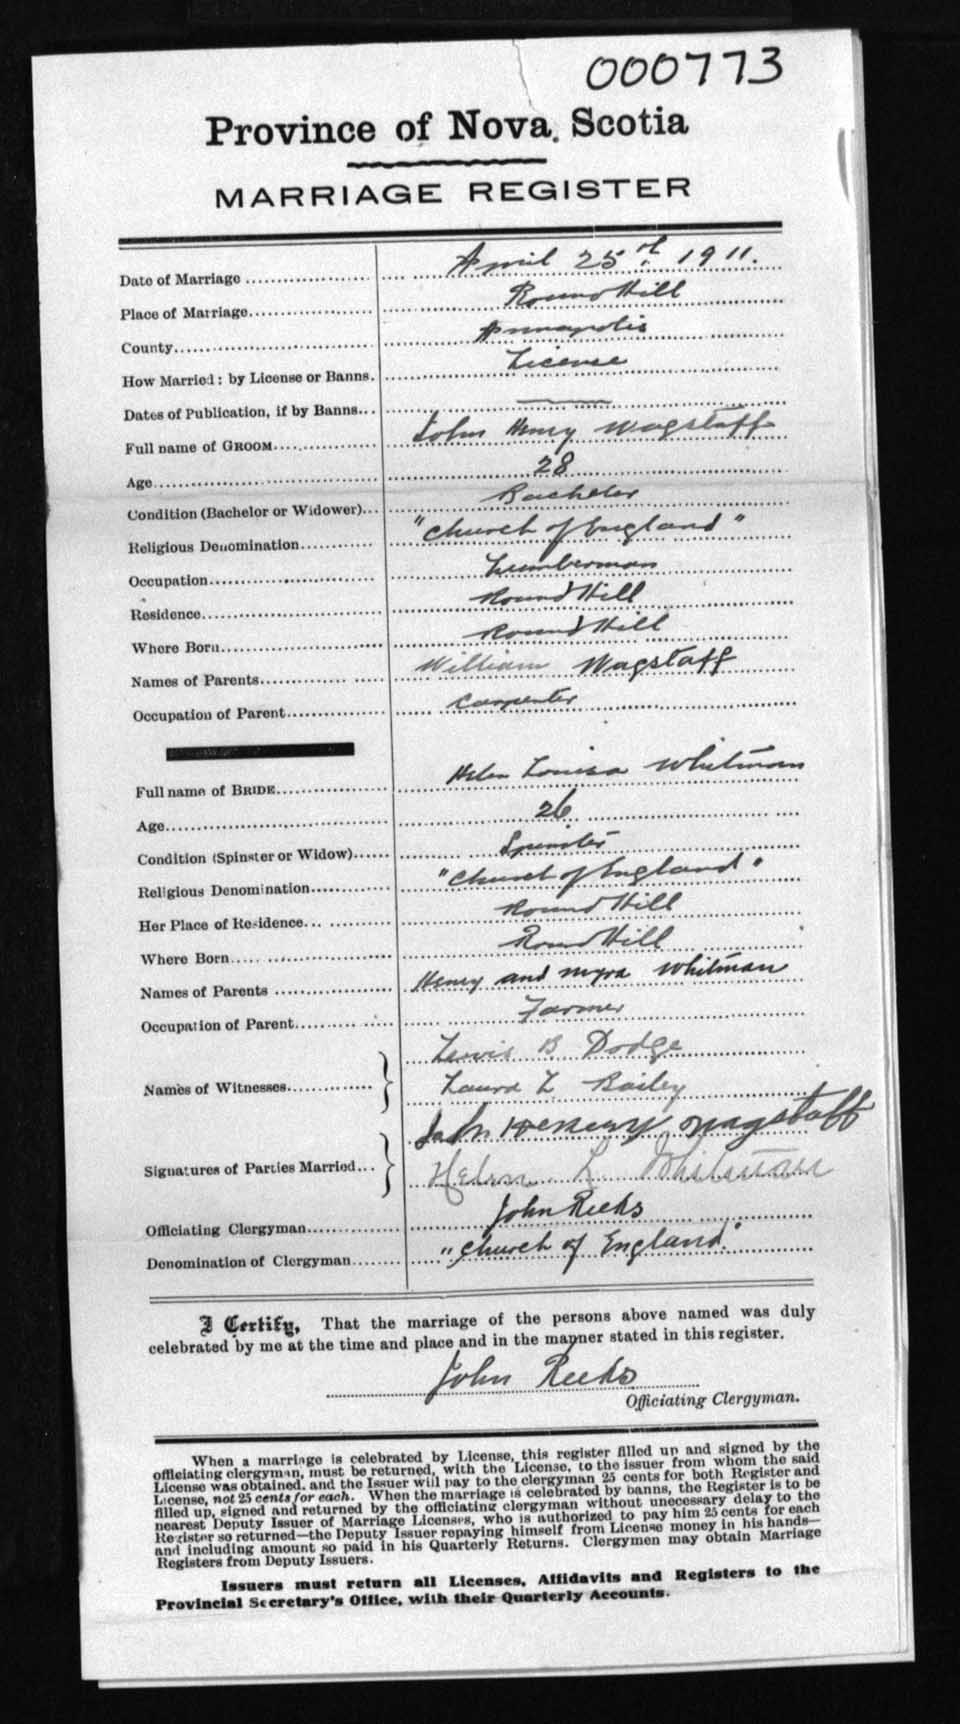 000773
Province of Nova Scotia
MARRIAGE REGISTER
Date of Marriage April 25th 1911.
Place of Marriage Round Hill
County Annapolis
How Married: by License or Banns. License
Dates of Publication, if by Banns... ——
Full name of GROOM John Henry Wagstaff
Age 28
Condition (Bachelor or Widower)... Bachelor
Religious Denomination "Church of England"
Occupation Lumberman
Residence Round Hill
Where Born Round Hill
Names of Parents William Wagstaff
Occupation of Parent Carpenter
Full name of BRIDE Helen Louisa Whitman
Age 26
Condition (Spinster or Widow) Spinster
Religious Denomination "Church of England"
Her Place of Residence Round Hill
Where Born Round Hill
Names of Parents Henry and Myra Whitman
Occupation of Parent Farmer
Lewis B Dodge
Names of Witnesses Laura L Bailey
John Henery Wagstaff
Signatures of Parties Married... Helen L. Whitman
Officiating Clergyman John Reeks
Denomination of Clergyman "Church of England."
I Certify, That the marriage of the persons above named was duly
celebrated by me at the time and place and in the manner stated in this register.
John Reeks
Officiating Clergyman.
When a marriage is celebrated by License, this register filled up and signed by the
officiating clergyman, must be returned, with the License, to the issuer from whom the said
License was obtained, and the Issuer will pay to the clergyman 25 cents for both Register and
License, not 25 cents for each. When the marriage is celebrated by banns, the Register is to be
filled up, signed and returned by the officiating clergyman without unnecessary delay to the
nearest Deputy Issuer of Marriage Licenses, who is authorized to pay him 25 cents for each
Register so returned—the Deputy Issuer repaying himself from License money in his hands—
and including amount so paid in his Quarterly Returns. Clergymen may obtain Marriage
Registers from Deputy Issuers.
Issuers must return all Licenses, Affidavits and Registers to the
Provincial Secretary's Office, with their Quarterly Accounts.